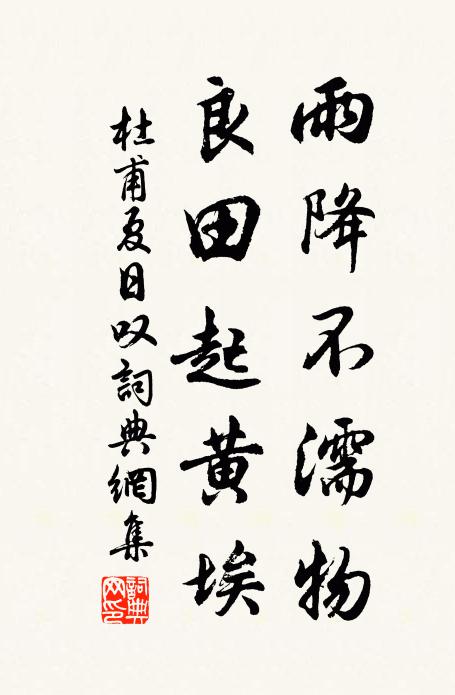 雨降不濡物
良田起黄埃
杜甫夏日叹詞典網集
詞典
网印